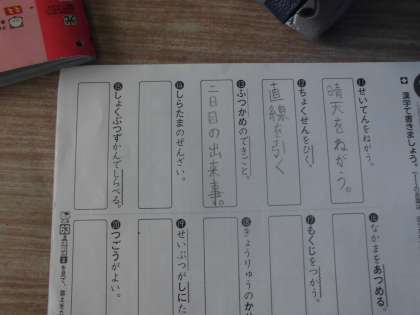 漢字で書きましょう。
⑪せいてんをねがう。
晴天をねがう。
⑫ちょくせんをひく。
直線を引く
⑬ふつかめのできごと。
二日目の出来事。
⑭しらたまのぜんざい。
⑮しょくぶつずかんでしらべる。
⑯なかまをあつめる。
⑰もくじをつかう。
⑱きょうりゅうのか
⑲せいぶつがしにた
⑳つごうがよい。